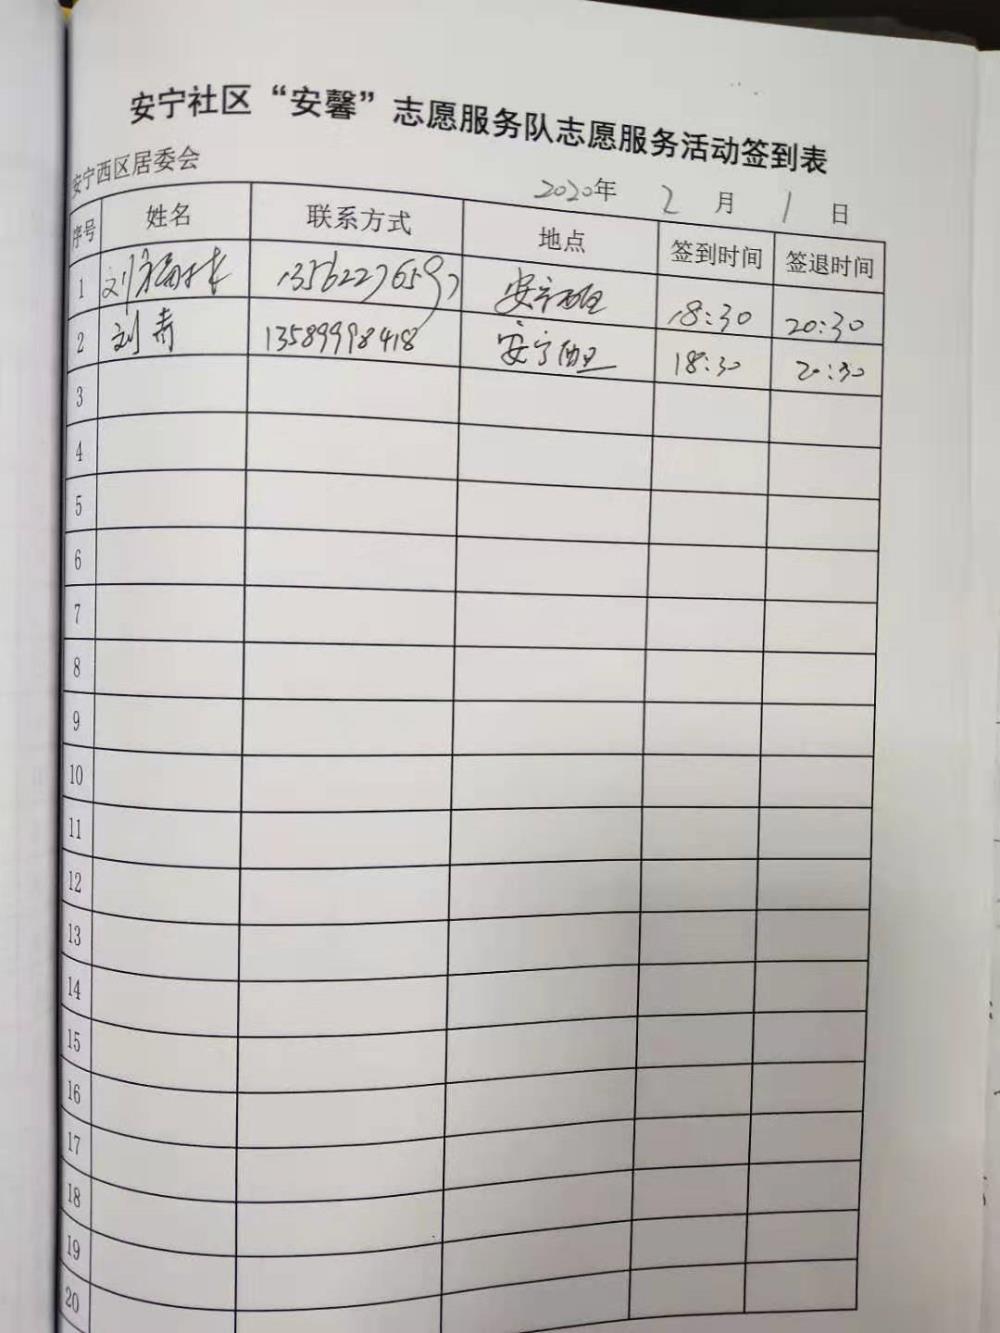 安宁社区“安馨”志愿服务队志愿服务活动签到表
安宁西区居委会 2020年 2 月 1 日
序号 姓名 联系方式 地点 签到时间 签退时间
1 刘 13562276597 安宁西区 18:30 20:30
2 刘寿 13589998418 安宁西区 18:30 20:30
3
4
5
6
7
8
9
10
11
12
13
14
15
16
17
18
19
20